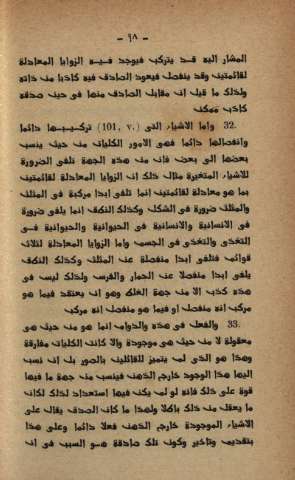 - ٩٨ -
المشار اليه قد يتركب فيوجد فيه الزوايا المعادلة
لقائمتين وقد ينفصل فيعود الصادق فيه كاذبا من ذاته
ولذلك ما قيل ان مقابل الصادق منها في حين صدقه
كاذب ممكن
32. واما الاشياء التى (101, v.) تركيبها دائما
وانفصالها دائما فهى الامور الكليات من حيث ينسب
بعضها الى بعض فان من هذه الجهة تلفى الضرورة
للاشياء المتغيرة مثال ذلك ان الزوايا المعادلة لقائمتين
بما هو معادلة لقائمتين انما تلفى ابدا مركبة في المثلث
والمثلث ضرورة في الشكل وكذلك النطق انما يلفى ضرورة
في الانسانية والانسانية في الحيوانية والحيوانية فى
التغذى والتغذى فى الجسم واما الزوايا المعادلة لثلاث
قوائم فتلفى ابدا منفصلة عن المثلث وكذلك النطق
يلفى ابدا منفصلا عن الحمار والفرس ولذلك ليس فى
هذه كذب الا من جهة الغلط وهو ان يعتقد فيما هو
مركب انه منفصل او فيما هو منفصل انه مركب
33. والفعل فى هذه والدوام انما هو من حيث هى
معقولة لا من حيث هى موجودة والا كانت الكليات مفارقة
وهذا هو الذى لم يتميز للقائلين بالصور بل ان نسب
اليها هذا الوجود خارج الذهن فينسب من جهة ما فيها
قوة على ذلك فانه لو لم يكن فيها استعداد لذلك لكان
ما يعقل من ذلك باطلا ولهذا ما كان الصدق يقال على
الاشياء الموجودة خارج الذهن فعلا دائما وعلى هذا
بتقديم وتاخير وكون تلك صادقة هو السبب فى ان